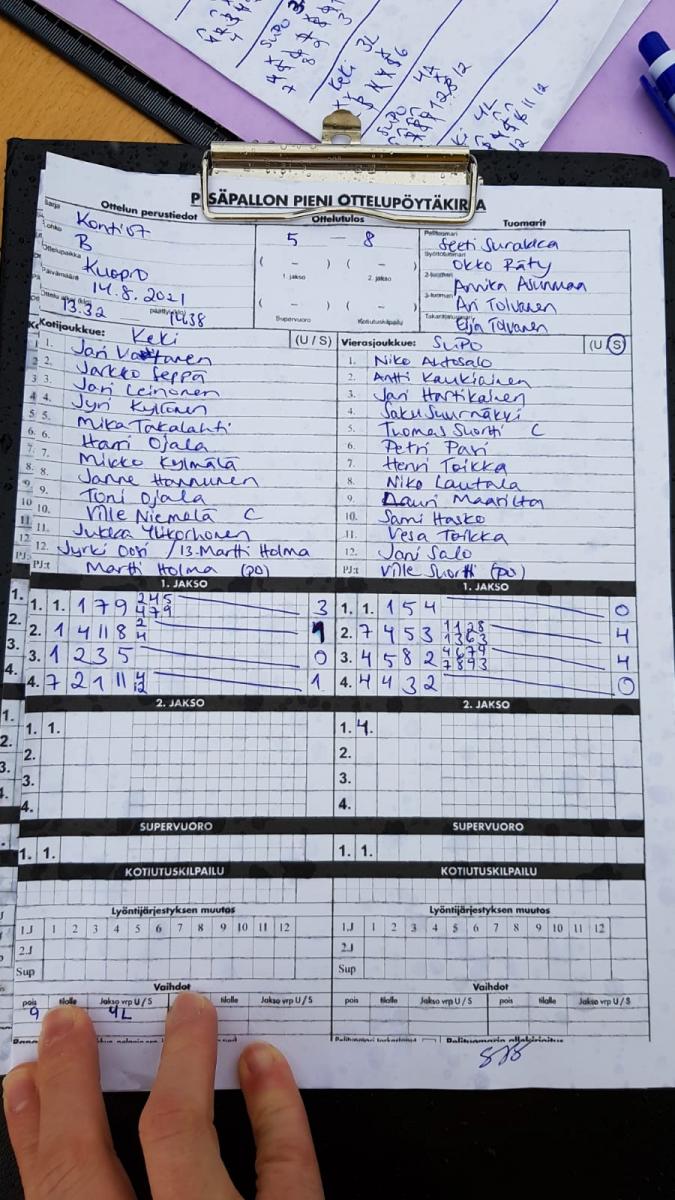 PESÄPALLON PIENI OTTELUPÖYTÄKIRJA
Ottelun perustiedot
Sarja Kontist
Lohko B
Ottelupaikka Kuopio
Päivämäärä 14.8.2021
13.32 – 14.38
Ottelutulos
5 – 8
( – ) ( – )
1. jakso 2. jakso
( – ) ( – )
Supervuoro Kotiutuskilpailu
Tuomarit
Pelituomari Seeti Surakka
Syöttötuomari Okko Räty
2-tuomari Annika Asunmaa
3-tuomari Ari Tolvanen
Takarajatuomari Eija Tolvanen
Kotijoukkue: Keki (U / S)
1. Jari Vattanen
2. Jarkko Seppä
3. Jari Leinonen
4. Jyri Kyllönen
5. Mika Takalahti
6. Harri Ojala
7. Mikko Kylmälä
8. Janne Hannunen
9. Toni Ojala
10. Ville Niemelä C
11. Jukka Ylikorhonen
12. Jyrki Oosi / 13. Martti Holma
PJ:t Martti Holma (po)
Vierasjoukkue: SuPo (U / S)
1. Niko Autosalo
2. Antti Kaukiainen
3. Jari Hartikainen
4. Saku Suurnäkki
5. Tuomas Suortti C
6. Petri Pari
7. Henri Toikka
8. Niko Lautala
9. Lauri Maarilta
10. Sami Hasko
11. Vesa Toikka
12. Jani Salo
PJ:t Ville Suortti (po)
1. JAKSO
1. 1. 1 7 9 2 4 5 3
4 7 9
2. 1 4 11 8 2 1
4
3. 1 2 3 5 0
4. 7 2 1 11 4 1
12
1. JAKSO
1. 1. 1 5 4 0
2. 7 4 5 3 1 1 2 8 4
1 3 6 3
3. 4 5 8 2 4 6 7 9 4
7 8 9 3
4. 4 4 3 2 0
2. JAKSO
1. 1.
2.
3.
4.
2. JAKSO
1. 4.
2.
3.
4.
SUPERVUORO
1. 1.
SUPERVUORO
1. 1.
KOTIUTUSKILPAILU
KOTIUTUSKILPAILU
Lyöntijärjestyksen muutos
1.J 1 2 3 4 5 6 7 8 9 10 11 12
2.J
Sup
Lyöntijärjestyksen muutos
1.J 1 2 3 4 5 6 7 8 9 10 11 12
2.J
Sup
Vaihdot
pois tilalle Jakso vrp U / S tilalle Jakso vrp U / S
9 4L
Vaihdot
pois tilalle Jakso vrp U / S pois tilalle Jakso vrp U / S
Pelituomarin allekirjoitus